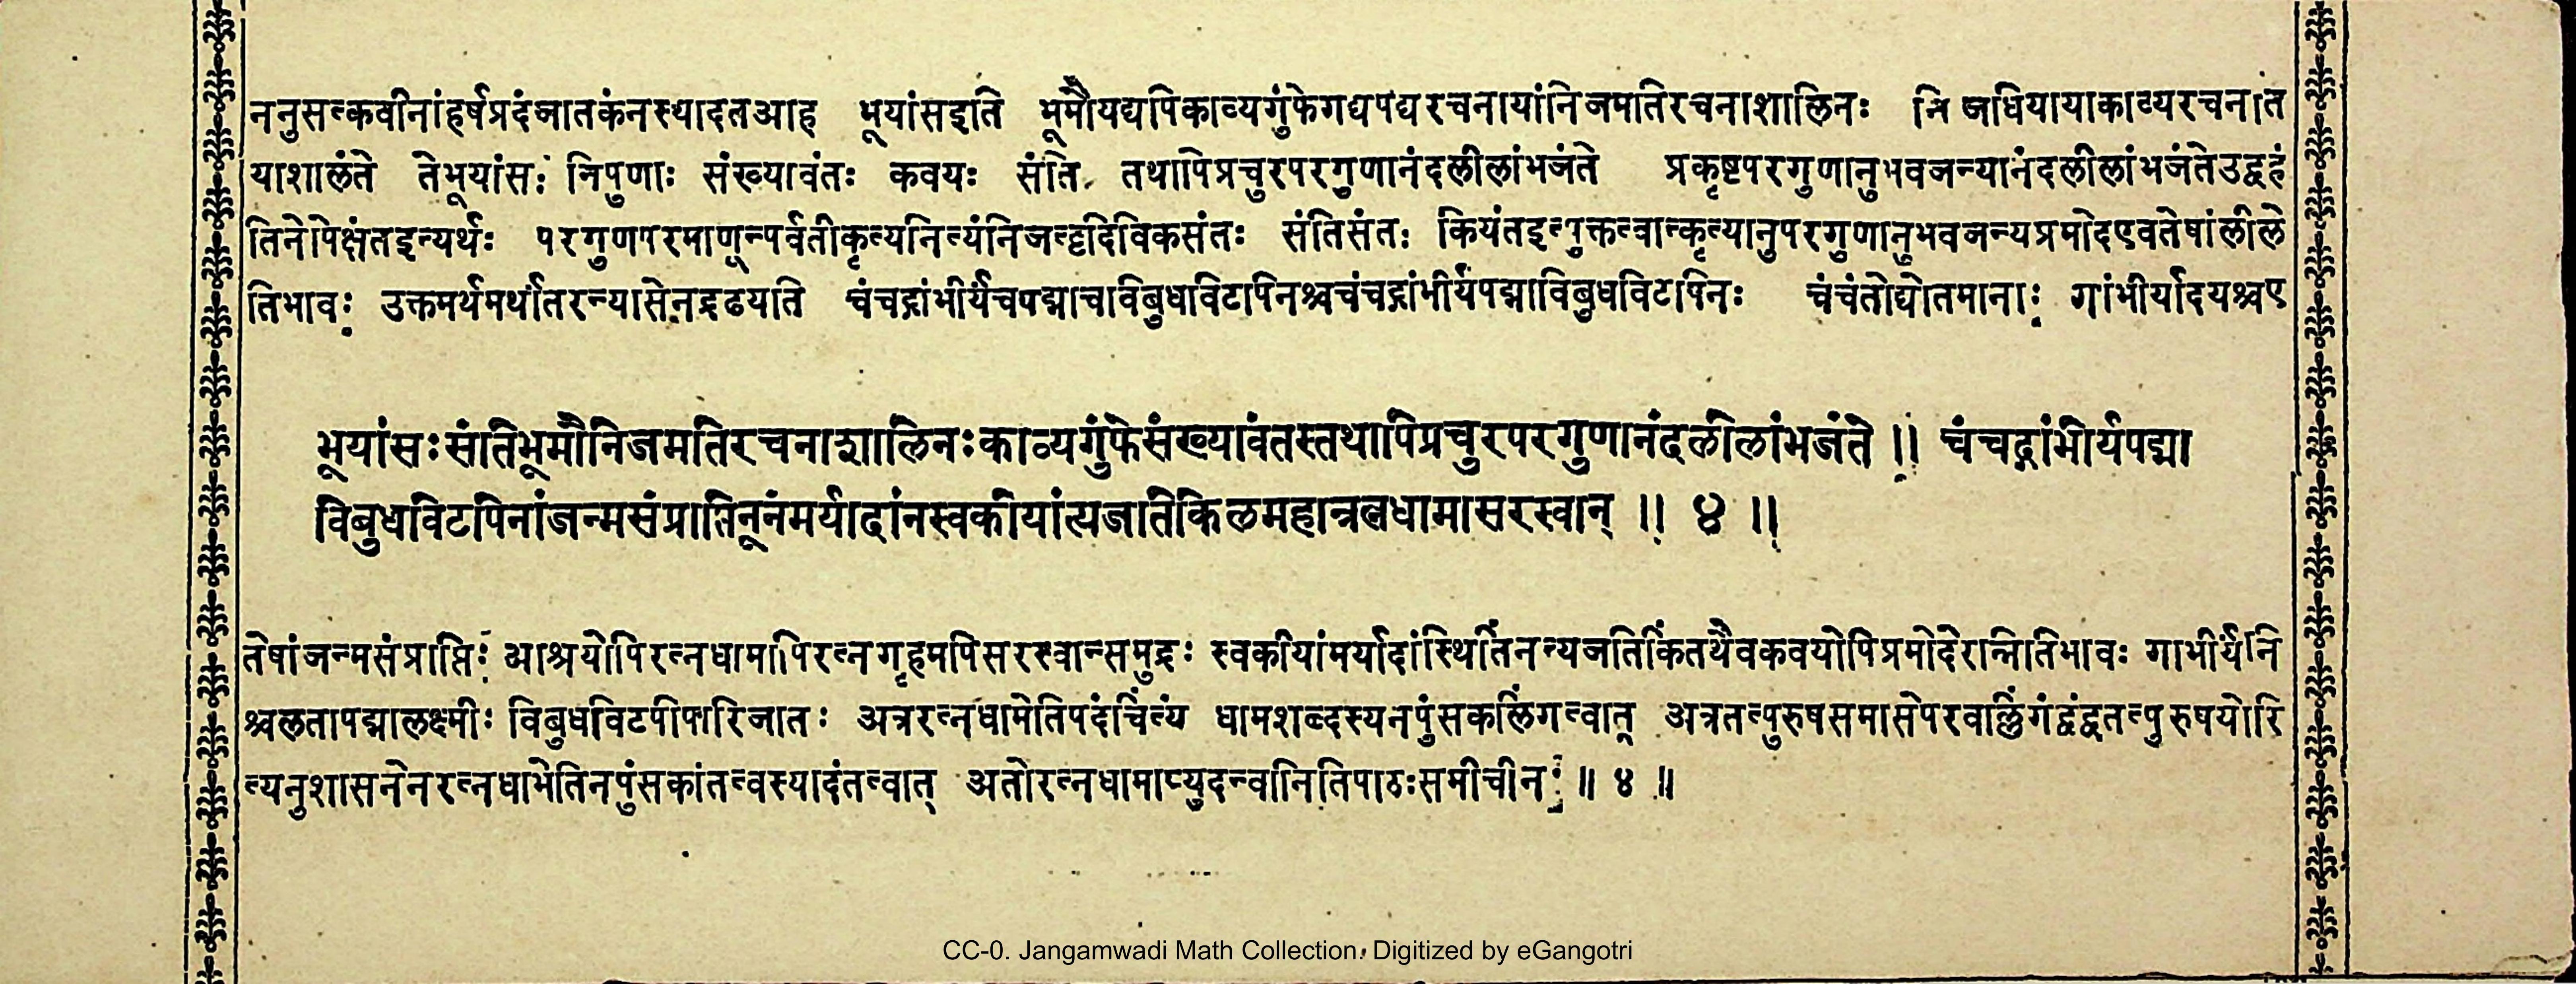 ननुसत्कवीनांहर्षप्रदंजातकंनस्यादतआह भूयांसइति भूमौयद्यपिकाव्यगुंफेगद्यपद्यरचनायांनिजमतिरचनाशालिनः निजधियायाकाव्यरचनात
याशालंते तेभूयांसः निपुणाः संख्यावंतः कवयः संति तथापिप्रचुरपरगुणानंदलीलांभजंते प्रकृष्टपरगुणानुभवजन्यानंदलीलांभजंतेउद्वहं
तिनेपिक्षंतइत्यर्थः परगुणपरमाणून्पर्वतीकृत्यनित्यंनिजहृदिविकसंतः संतिसंतः कियंतइत्युक्तत्वात्कृत्यानुपरगुणानुभवजन्यप्रमोदएवतेषांलीले
तिभावः उक्तमर्थमर्थांतरन्यासेनद्रढयति चंचद्गांभीर्यंचपद्माचविबुधाविटपिनश्चचंचद्गांभीर्यपद्माविबुधविटपिनः चंचंतोद्योतमानाः गांभीर्यादयश्चए
भूयांसःसंतिभूमौनिजमतिरचनाशालिनःकाव्यगुंफेसंख्यावंतस्तथापिप्रचुरपरगुणानंदलीलांभजंते ॥ चंचद्गांभीर्यपद्मा
विबुधविटपिनांजन्मसंप्राप्तिनूनंमर्यादांनस्वकीयांत्यजतिकिलमहान्रत्नधामासरस्वान् ॥ ४ ॥
तेषांजन्मसंप्राप्तिः आश्रयोपिरत्नधामापिरत्नगृहमपिसरस्वान्समुद्रः स्वकीयांमर्यादांस्थितिंनत्यजतिकिंतथैवकवयोपिप्रमोदेरान्नितिभावः गाभीर्यंनि
श्चलतापद्मालक्ष्मीः विबुधविटपीपारिजातः अत्ररत्नधामेतिपदंचिंत्यं धामशब्दस्यनपुंसकलिंगत्वात् अत्रतत्पुरुषसमासेपरवल्लिंगंद्वंद्वतत्पुरुषयोरि
त्यनुशासनेनरत्नधामेतिनपुंसकांतत्वस्यादंतत्वात् अतोरत्नधामाप्युदन्वानितिपाठःसमीचीनः ॥ ४ ॥
CC-0. Jangamwadi Math Collection. Digitized by eGangotri